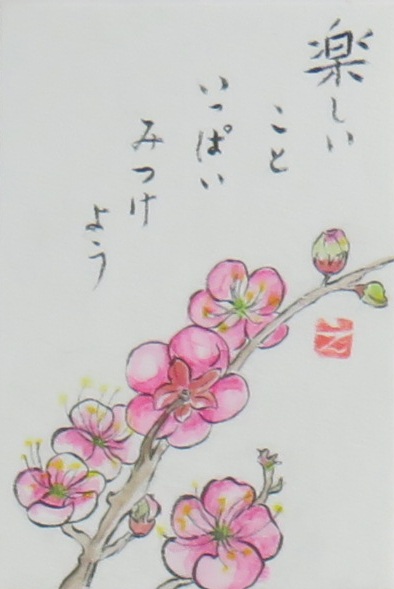 楽しい
こと
いっぱい
みつけ
よう